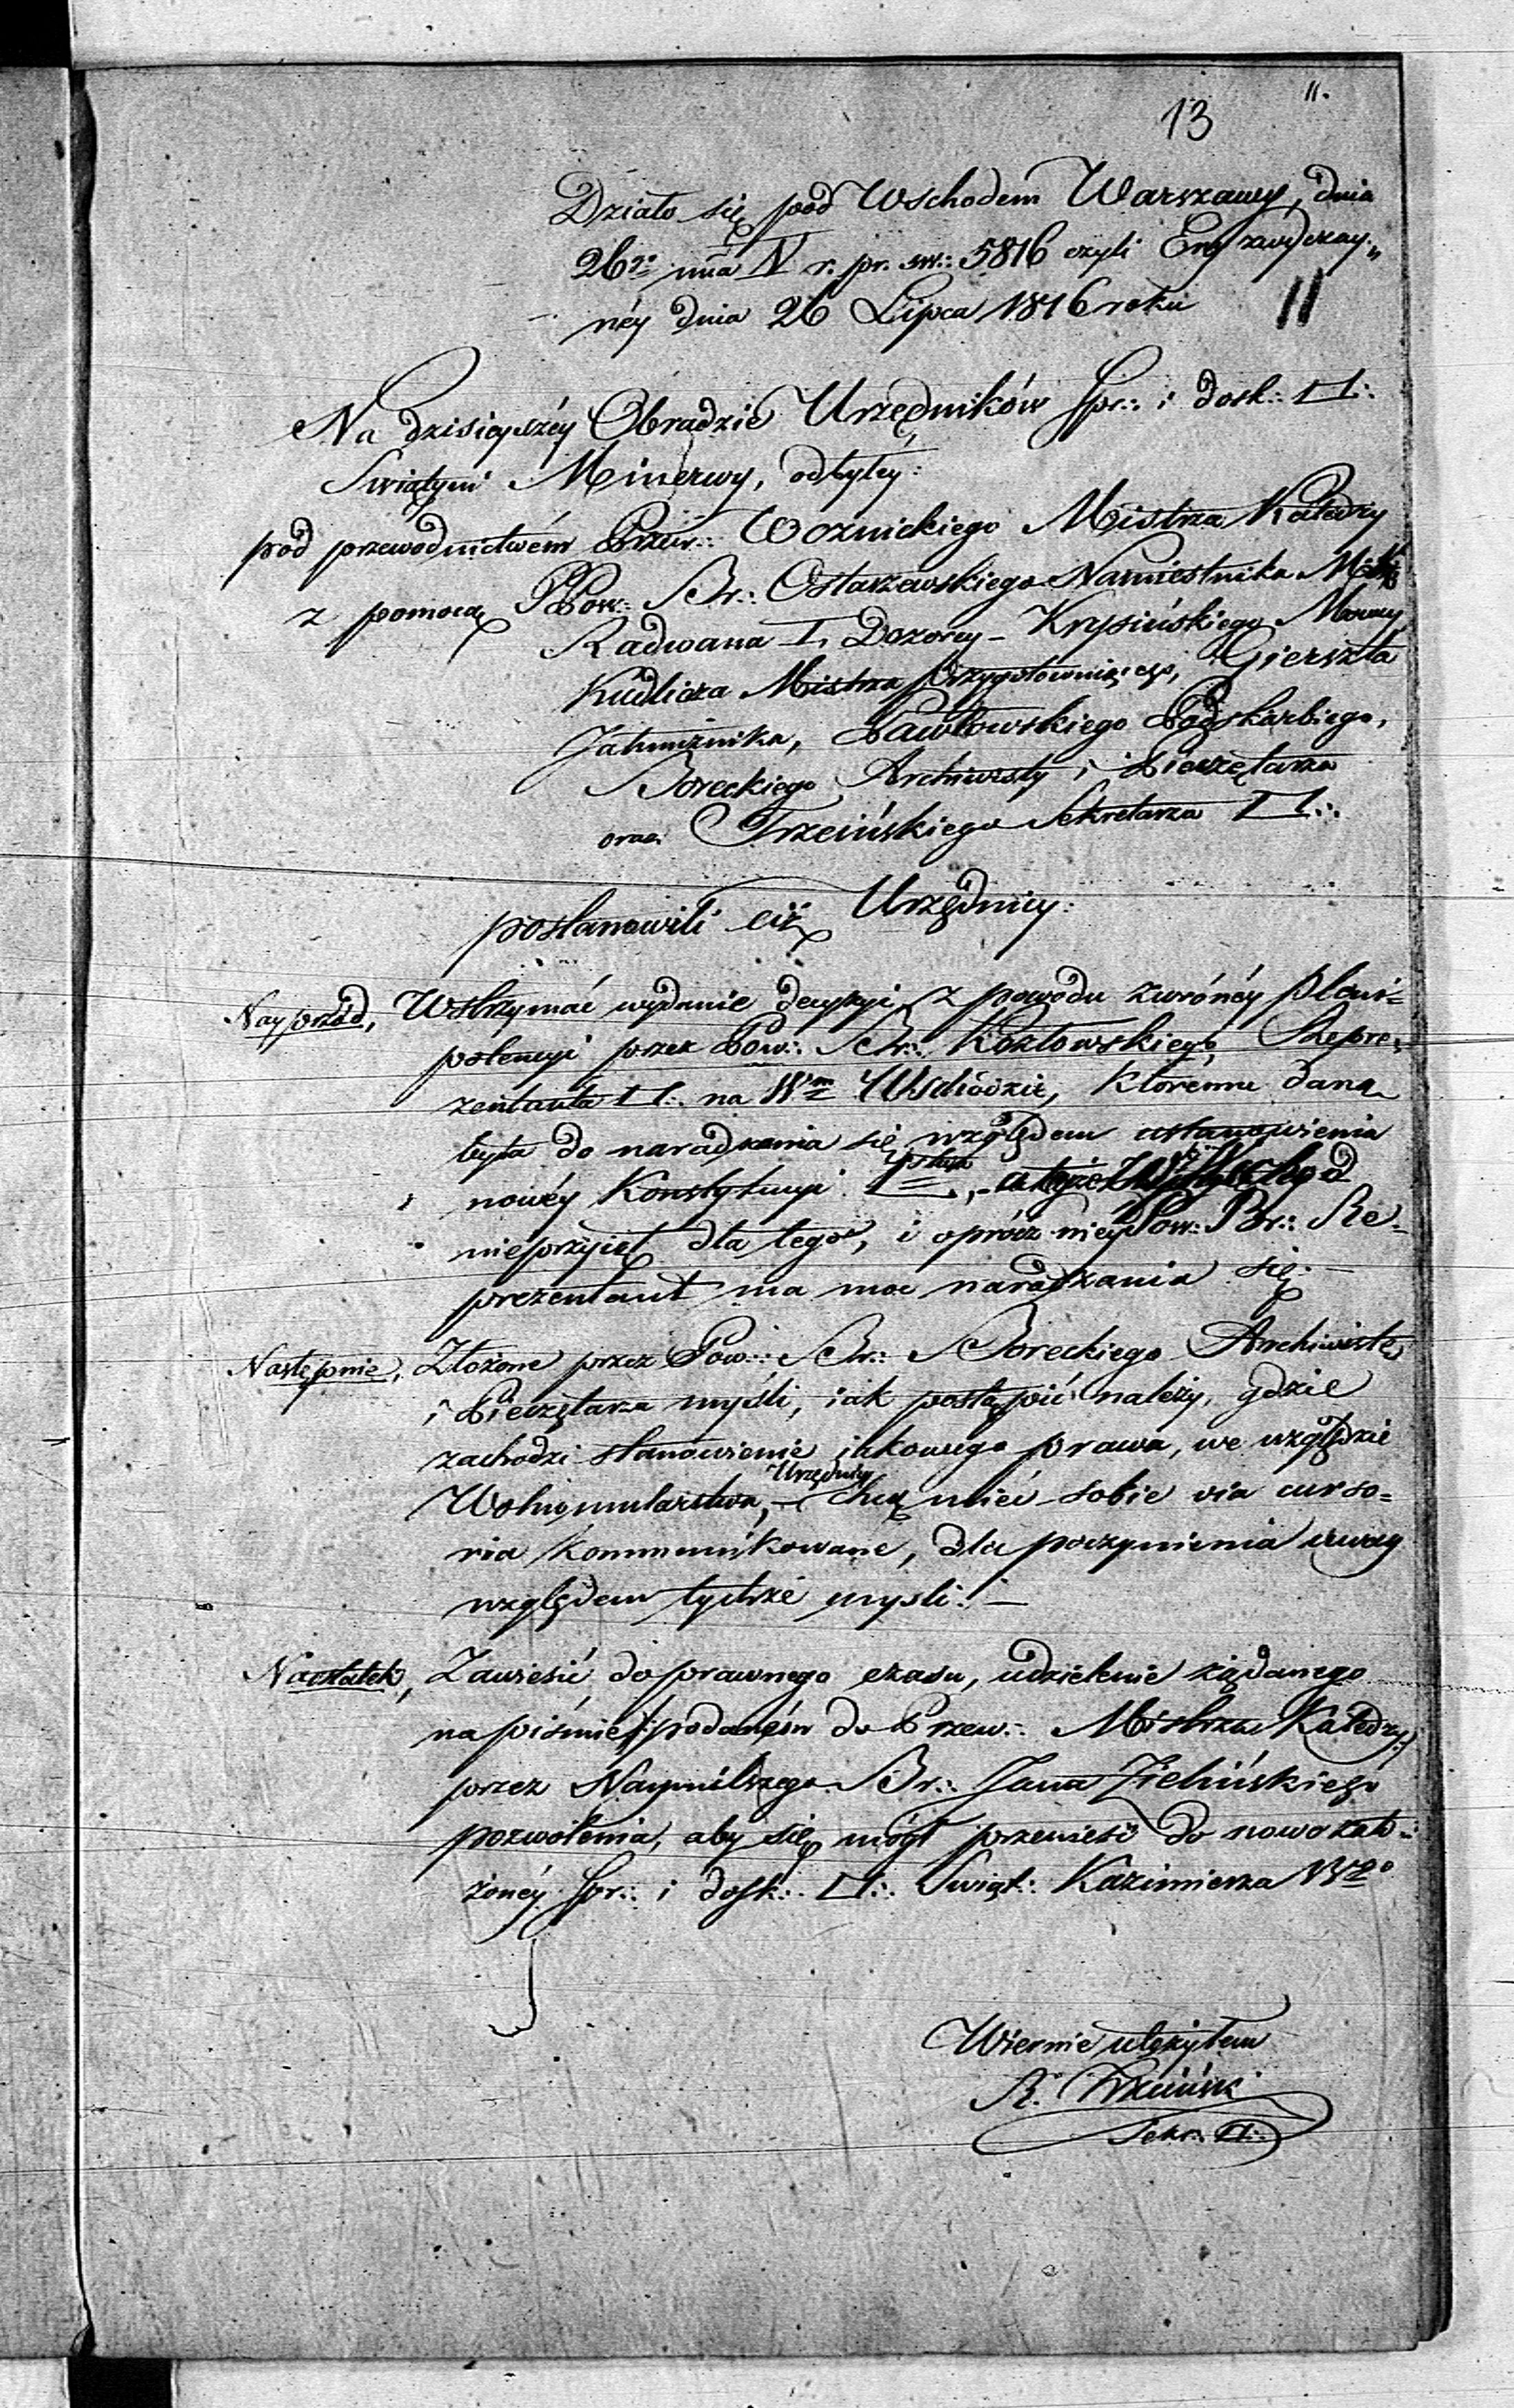 11.
13
Działo się pod Wschodem Warszawy, dnia
26go mca IV r. pr. sw.: 5816 czyli Ery zwyczay„
néy dnia 26 Lipca 1816 roku
11
Na dzisieyszéy Obradzie Urzędników Spr.: i dosk.: □:
Swiątyni Minerwy, odbytéy:
pod przewodnictwém Przew.: Woznickiego Mistrza Katedry
z pomocą PPow.: Br.: Ostaszewskiego Namiestnika
Radwana I. Dozorcy – Krysińskiego Mowcy
Kudlicza Mistrza Przygotowuiącego, Gierszta
Jałmużnika, Pawłowskiego Podskarbiego,
Boreckiego Archiwisty i Pieczętarza
oraz Trzcińskiego Sekretarza □.:
postanowili ciż Urzędnicy:
Nayprzód, Wstrzymać wydanie decyzyi z powodu zwrónéy pleni=
potencyi przez Pow.: Br.: Kozłowskiego Repre,
zentanta □.: na Wm Wschodzie, któremu daną
była do naradzania się względem ustanowienia
nowéy Konstytucyi
nieprzyięt dla tego, i oprócz niey Pow.: Br.: Re-
prezentant ma moc naradzania się. –
Następnie, Złożone przez Pow.: Br.: Boreckiego Archiwistę
i Pieczętarza myśli, iak postąpić należy, gdzie
zachodzi stanowienie iakowego prawa, we względzie
Urzędnicy
Wolnomularstwa, – chcą mieć sobie via curso=
ria kommunikowane, dla poczynienia uwag
względem tychże mysli. –
Naostatek, Zawiesić do prawnego czasu, udzielenie żądanego
na piśmie podaném do Przew.: Mistrza Katedry
przez Naymilszego Br.: Jana Zielińskiego
pozwolenia, aby się mógł przenieść do nowo zało=
żonéy Spr.: i dosk.: □.: Swiąt.: Kazimierza Wgo
Wiernie ułożyłem
R. Trzciński
Sekr.: □.: